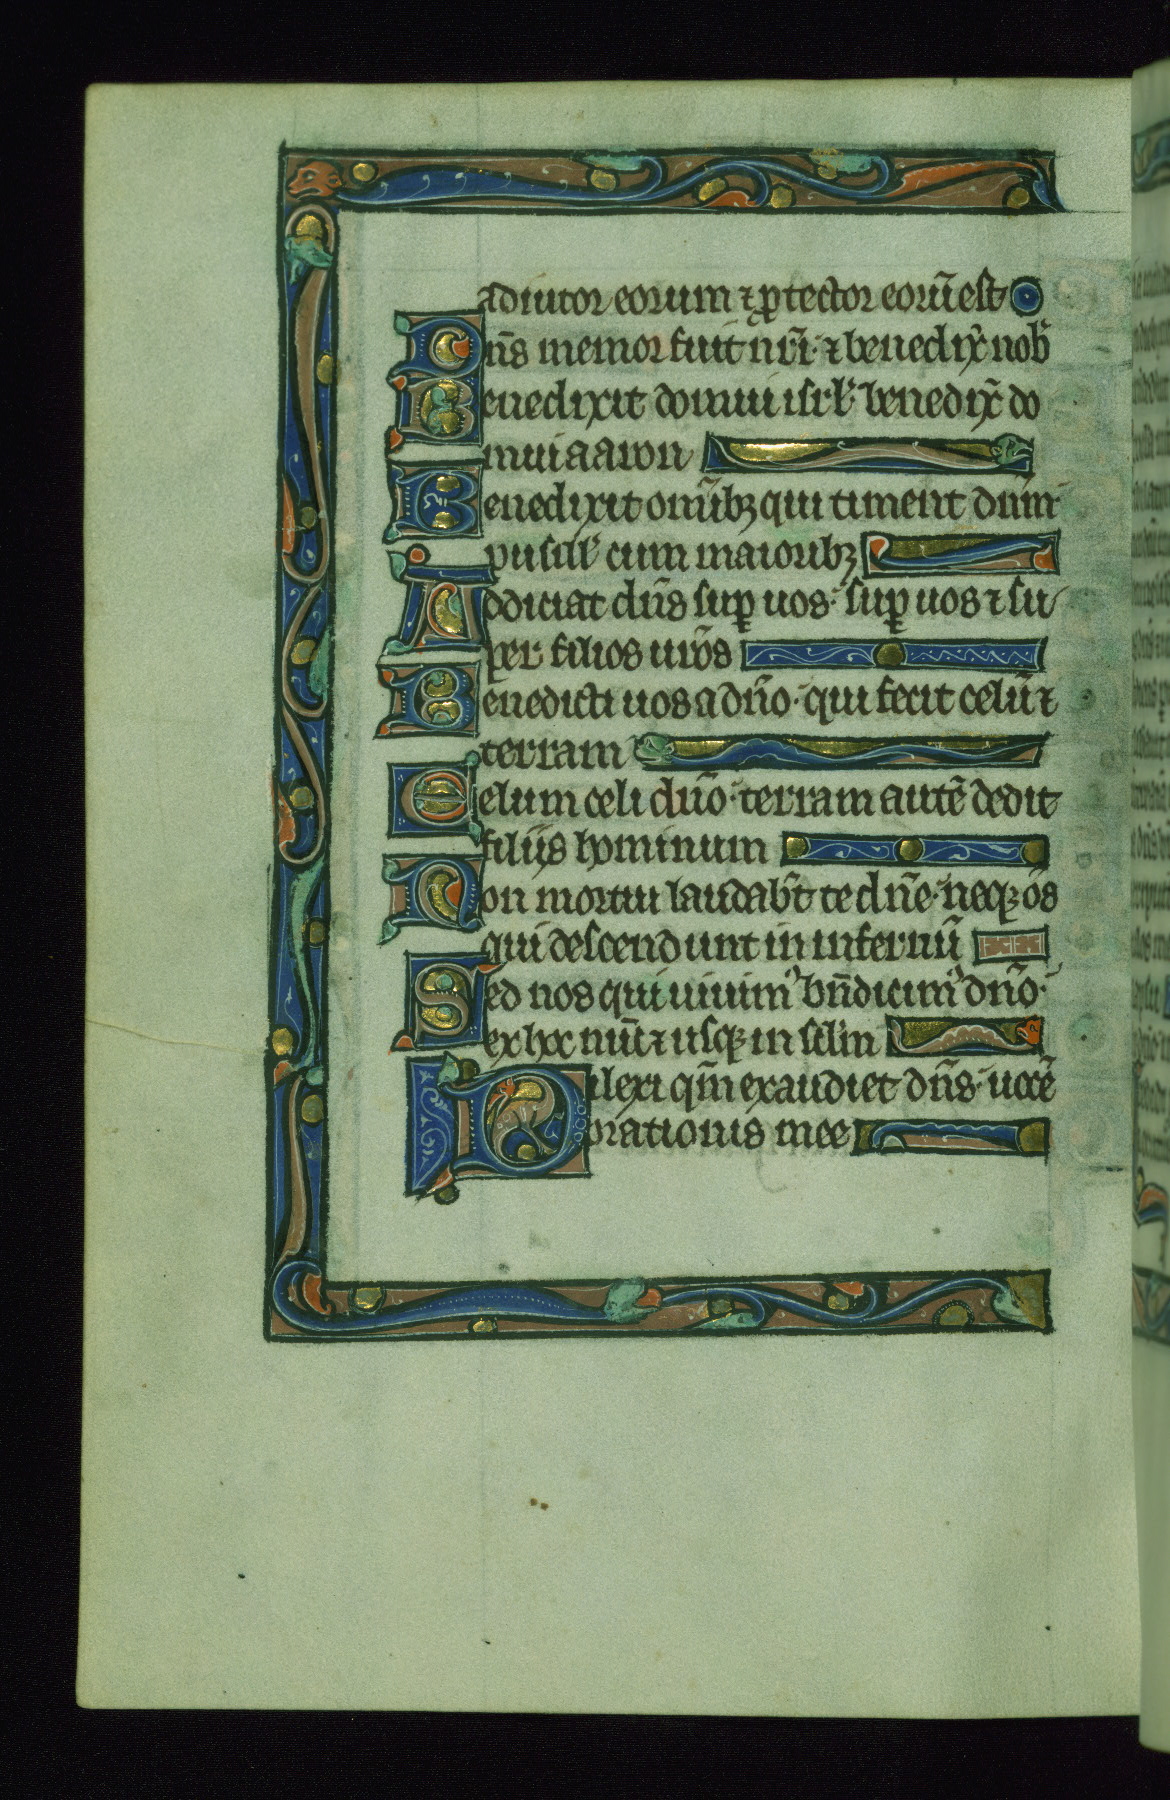 adiutor eorum ⁊ ꝓtector eorū est
Dn̄s memor fuit nr̄i · ⁊ benedix̄ nob̄
Benedixit domui isrl̓ benedix̄ do
mui aaron
Benedixit om̄ibꝫ qui timent dn̄m ·
pusill̓ cum maioribꝫ
Addiciat dn̄s suꝑ uos · suꝑ uos ⁊ su
per filios ur̄os
Benedicti uos a dn̄o · qui fecit celū ⁊
terram
Celum celi dn̄o · terram autē dedit
filijs hominum
Non mortui laudab̄t te dn̄e · neqꝫ om̄s
qui descendunt in infernū
Sed nos qui uiuimꝰ bn̄dicimꝰ dn̄o ·
ex hoc nūc ⁊ usqꝫ in sclm̄
Dilexi qm̄ exaudiet dn̄s · uocē
orationis mee